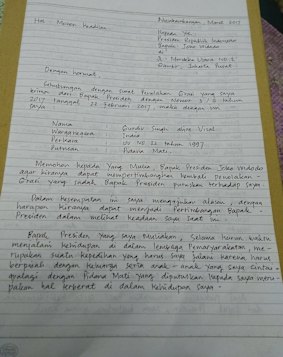 Nusakambangan, Maret 2017
Hal : Mohon Keadilan
Kepada Yth.
Presiden Republik Indonesia
Bapak Joko Widodo
di
Jl. Merdeka Utara No. 2
Gambir, Jakarta Pusat
Dengan hormat,
Sehubungan dengan surat Penolakan Grasi yang saya
terima dari Bapak Presiden dengan Nomor 3 / G tahun
2017 tanggal 22 Februari 2017, maka dengan ini
saya
Nama : Gurdip Singh alias Vishal
Warganegara : India
Perkara : UU No 22 tahun 1997
Putusan : Pidana Mati
Memohon kepada Yang Mulia Bapak Presiden Joko Widodo
agar kiranya dapat mempertimbangkan kembali Penolakan
Grasi yang sudah Bapak Presiden putuskan terhadap saya.
Dalam kesempatan ini saya mengajukan alasan, dengan
harapan kiranya dapat menjadi Pertimbangan Bapak
Presiden dalam melihat keadaan saya saat ini.
Bapak Presiden Yang saya Muliakan, Selama kurun waktu
menjalani kehidupan di dalam lembaga Pemasyarakatan me-
rupakan suatu kepedihan yang harus saya jalani karena harus
berpisah dengan keluarga serta anak-anak yang saya cintai.
apalagi dengan Pidana Mati yang diputuskan kepada saya meru-
pakan hal terberat di dalam kehidupan saya.